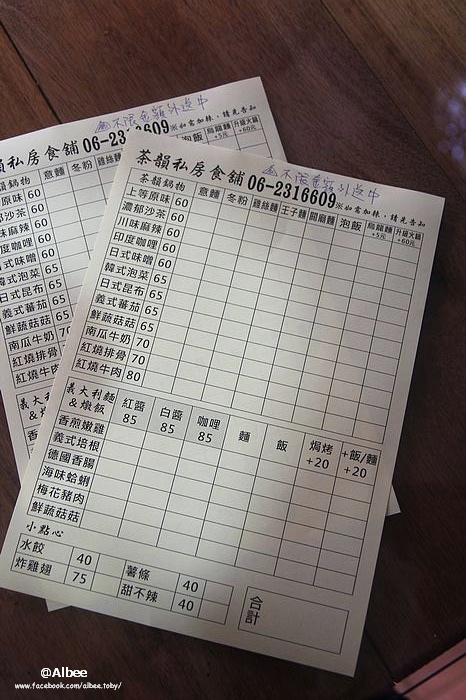 不限金額外送中
茶韻私房食舖 06-2316609 ※如需加辣,請先告知
茶韻鍋物 意麵 冬粉 雞絲麵 王子麵 關廟麵 泡飯 烏龍麵+5元 升級大鍋+60元
上等原味 60
濃郁沙茶 60
川味麻辣 60
印度咖哩 60
日式味噌 60
韓式泡菜 65
日式昆布 65
義式番茄 65
鮮蔬菇菇 65
南瓜牛奶 70
紅燒排骨 70
紅燒牛肉 80
義大利麵&燉飯 紅醬85 白醬85 咖哩85 麵 飯 焗烤+20 +飯/麵+20
香煎嫩雞
義式培根
德國香腸
海味蛤蜊
梅花豬肉
鮮蔬菇菇
小點心
水餃 40 薯條 40
炸雞翅 75 甜不辣 40
合計
不限金額外送中
韻私房食舖 06-23 6609 ※如需加辣,請先告知
韻鍋物 意麵 冬粉 雞絲麵 烏龍麵+5元 升級大鍋+60元
原味 60
沙茶 60
麻辣 60
咖哩 60
味噌 60
式泡菜 65
日式昆布 65
義式番茄 65
鮮蔬菇菇 65
南瓜牛奶 70
紅燒排骨
紅燒牛肉
@Albee
www.facebook.com/albee.toby/